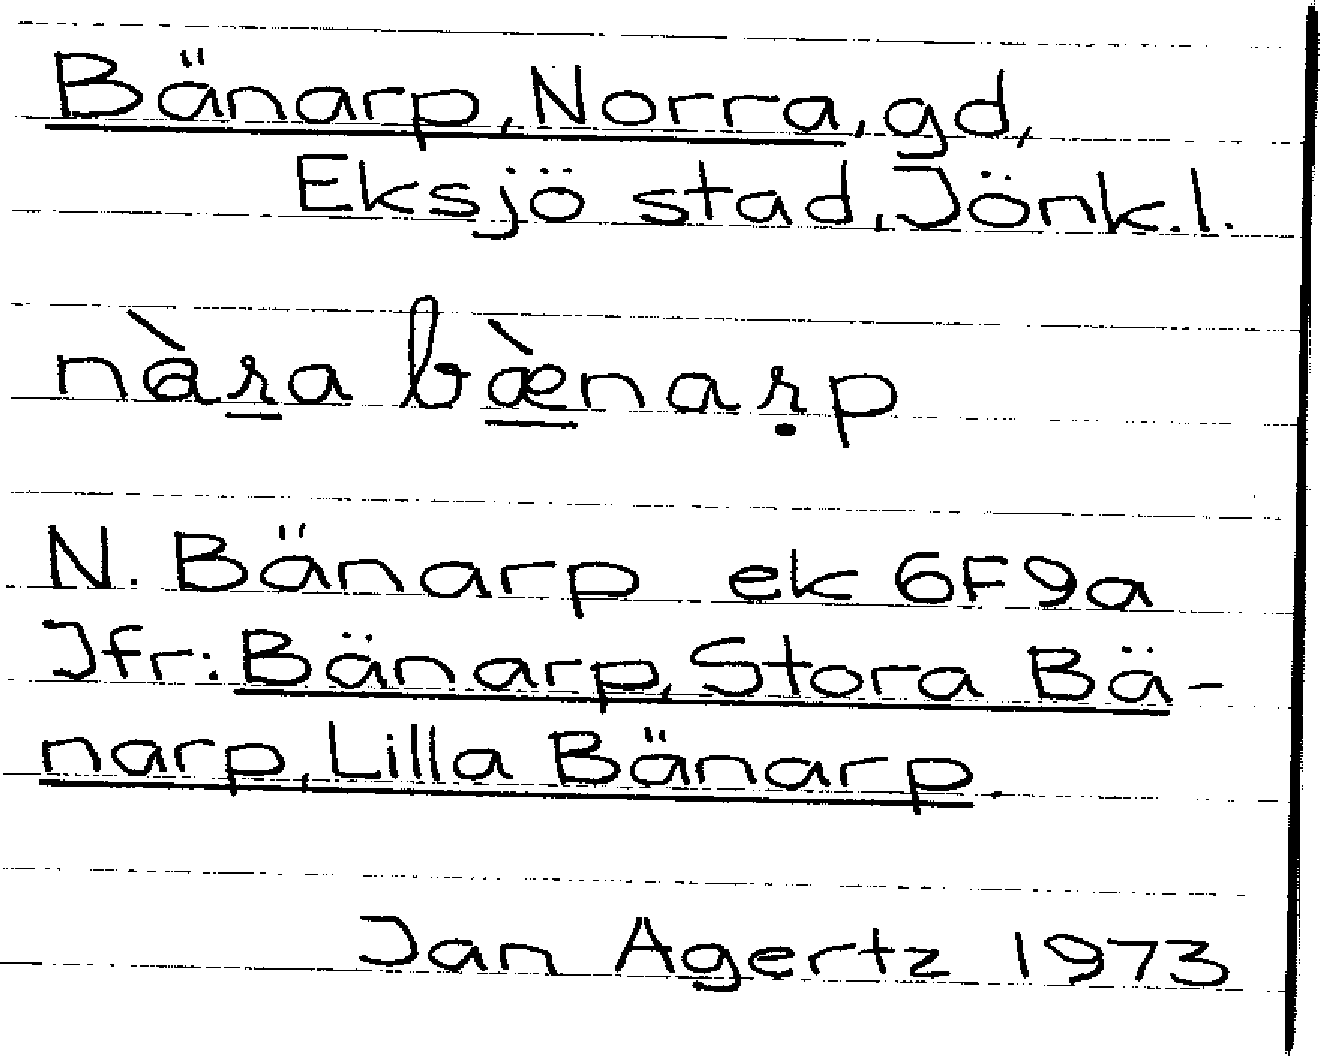 Bänarp, Norra, gd,
Eksjö stad, Jönk.l.
nàra bænarp
N. Bänarp ek 6F9a
Jfr: Bänarp, Stora Bä-
narp, Lilla Bänarp.
Jan Agertz 1973